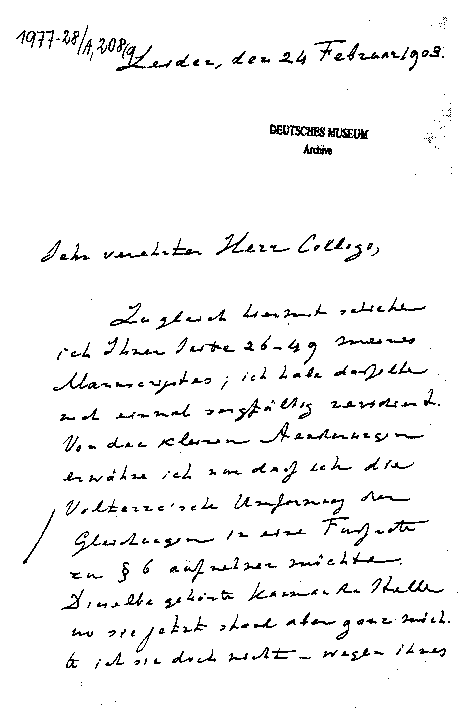 1977-28/A,208/9
Leiden, den 24 Februar 1903.
DEUTSCHES MUSEUM
Archive
Sehr verehrter Herr College,
Zugleich hiermit schicke
ich Ihnen Seite 26-49 meines
Manuscriptes; ich habe dasselbe
noch einmal sorgfältig revidiert.
Von den kleinen Aenderungen
erwähne ich nur daß ich die
Volterra'sche Umformung der
Gleichungen in eine Fußnote
zu § 6 aufnehmen möchte.
Dieselbe gehörte kaum an die Stelle
wo sie jetzt stand aber ganz möch-
te ich sie doch nicht – wegen ihres